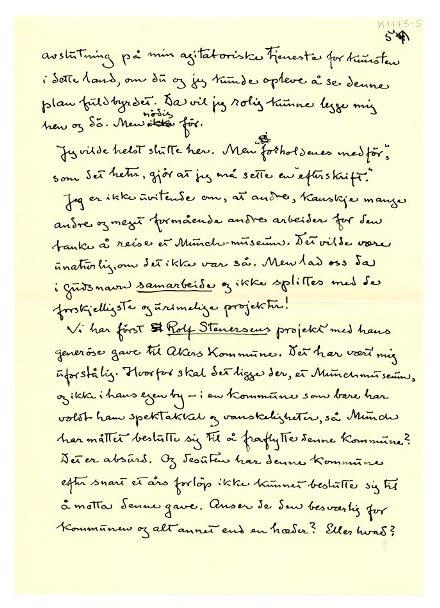 K1173-5
5
avslutning på min agitatoriske tjeneste for kunsten
i dette land, om du og jeg kunde opleve å se denne
plan fuldbyrdet. Da vil jeg rolig kunne legge mig
hen og dö. Men nödig för.
Jeg vilde helst slutte her. Men "forholdenes medför",
som det heter, gjör at jeg må sette en "efterskrift".
Jeg er ikke uvitende om, at andre, kanskje mange
andre og meget formående andre arbeider for den
tanke å reise et Munch-museum. Det vilde være
unaturlig, om det ikke var så. Men lad oss da
i Gudsnavn samarbeide og ikke splittes med de
forskjelligste og urimelige projekter!
Vi har först Rolf Stenersens projekt med hans
generöse gave til Akers Kommune. Det har vært mig
uforståelig. Hvorfor skal det ligge der, et Munchmuseum,
og ikke i hans egen by – i en kommune som bare har
voldt ham spektakkel og vanskeligheter, så Munch
har måttet beslutte sig til å fraflytte denne kommune?
Det er absurd. Og desuten har denne kommune
efter snart et års forlöp ikke kunnet beslutte sig til
å motta denne gave. Anser de den besværlig for
kommunen og alt annet end en hæder? Eller hvad?